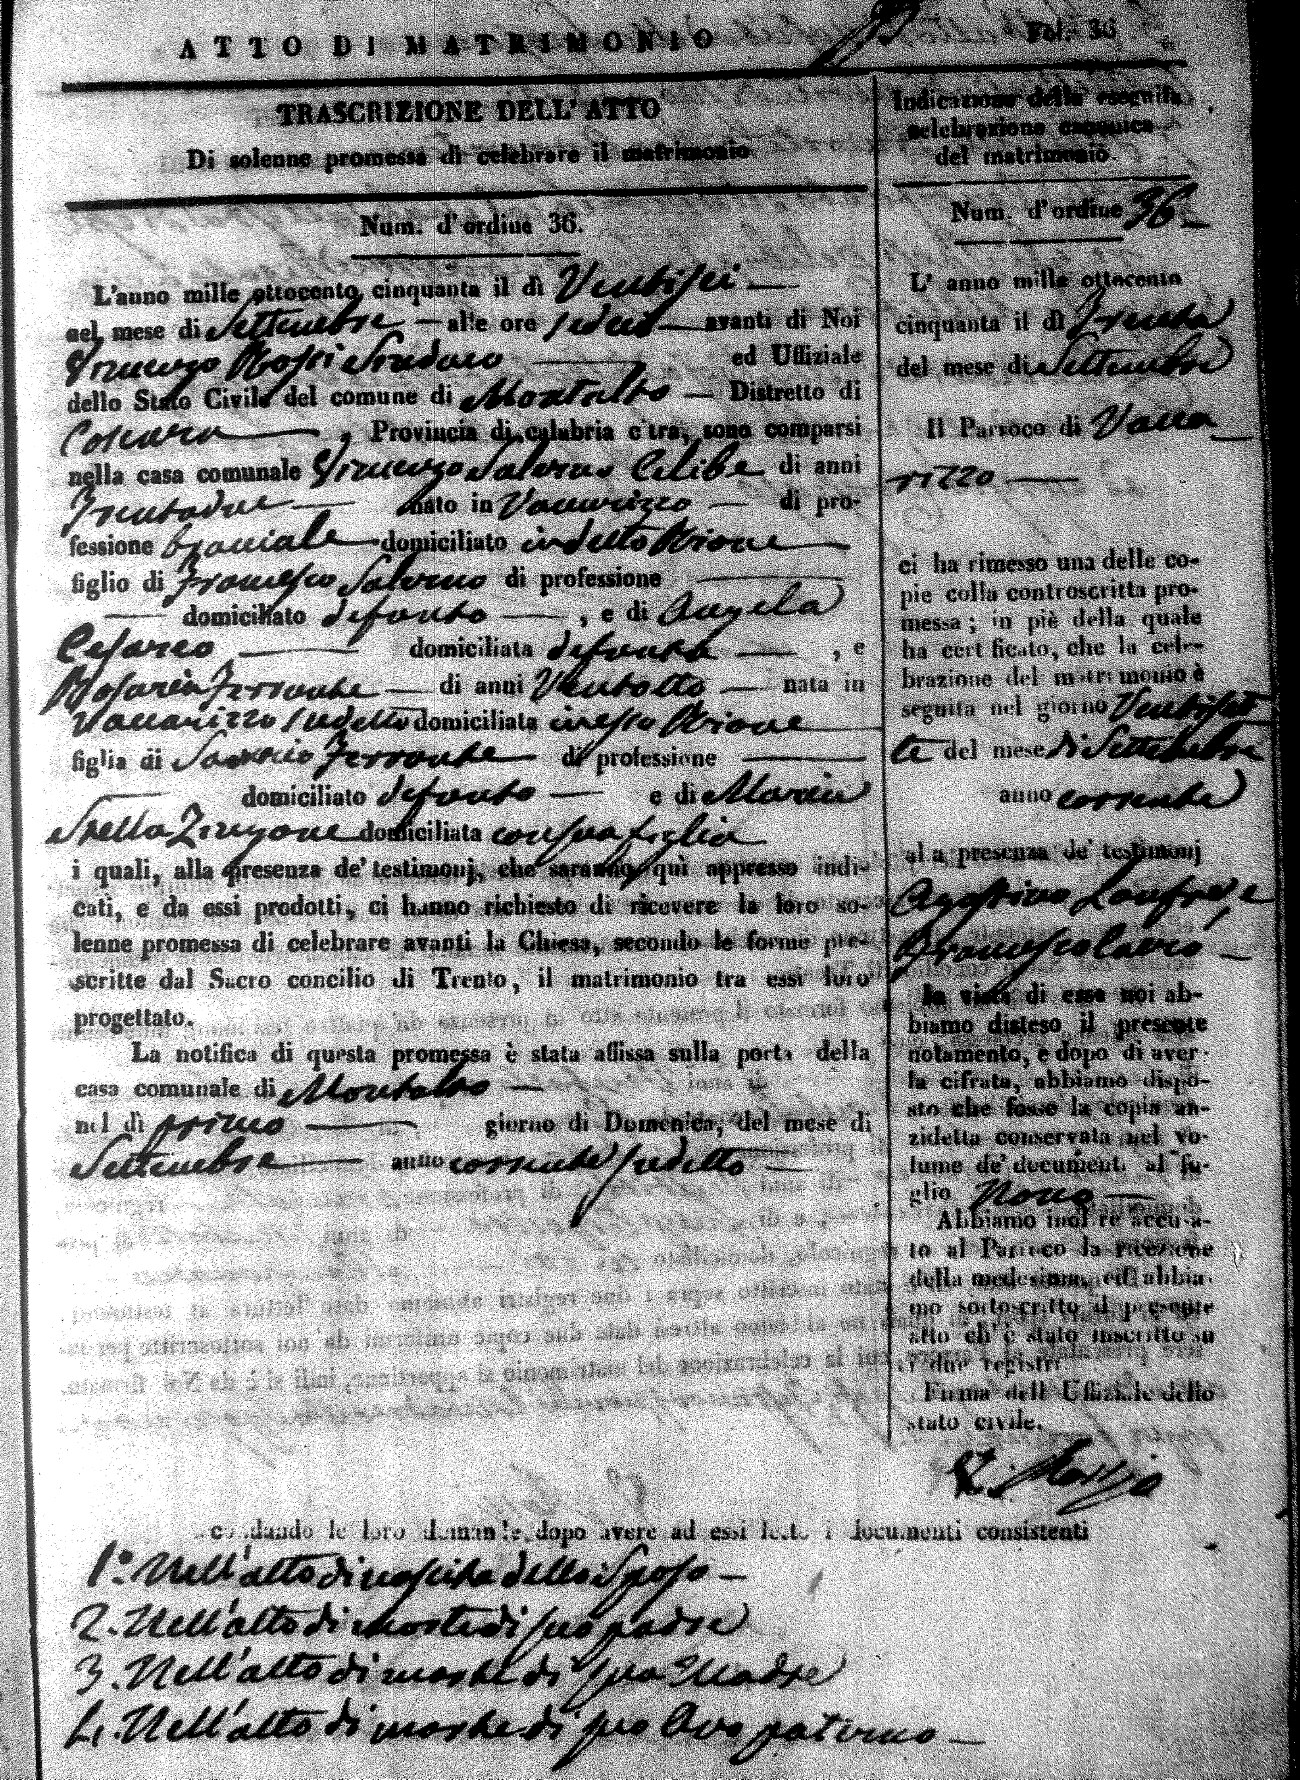 ATTO DI MATRIMONIO
Fol. 36
TRASCRIZIONE DELL' ATTO
Di solenne promessa di celebrare il matrimonio
Num. d'ordine 36.
L'anno mille ottocento cinquanta il dì Ventisei
nel mese di Settembre alle ore sedici avanti di Noi
Vincenzo Rossi Sindaco ed Uffiziale
dello Stato Civile del comune di Montalto Distretto di
Cosenza , Provincia di calabria citra, sono comparsi
nella casa comunale Vincenzo Salerno Celibe di anni
Trentadue nato in Vaccarizzo di pro-
fessione bracciale domiciliato in detto Rione
figlio di Francesco Salerno di professione
domiciliato defonto , e di Angela
Cesareo domiciliata defonta , e
Rosaria Ferrante di anni Ventotto nata in
Vaccarizzo sudetto domiciliata in esso Rione
figlia di Saverio Ferrante di professione
domiciliato defonto e di Maria
Stella Zingone domiciliata con sua figlia
i quali, alla presenza de' testimonj, che saranno qui appresso indi-
cati, e da essi prodotti, ci hanno richiesto di ricevere la loro so-
lenne promessa di celebrare avanti la Chiesa, secondo le forme pre-
scritte dal Sacro concilio di Trento, il matrimonio tra essi loro
progettato.
La notifica di questa promessa è stata affissa sulla porta della
casa comunale di Montalto
nel dì primo giorno di Domenica, del mese di
Settembre anno corrente sudetto
Indicazione della eseguita
celebrazione canonica
del matrimonio.
Num. d'ordine 36
L' anno mille ottocento
cinquanta il dì Trenta
del mese di Settembre
Il Parroco di Vacca
rizzo
ci ha rimesso una delle co-
pie colla controscritta pro-
messa ; in piè della quale
ha certificato, che la cele-
brazione del matrimonio è
seguita nel giorno Ventiset
te del mese di Settembre
anno corrente
alla presenza de' testimonj
Agostino Lanfrè, e
Francesco
In vista di essa noi ab-
biamo disteso il presente
notamento, e dopo di aver-
la cifrata, abbiamo dispo-
sto che fosse la copia an-
zidetta conservata nel vo-
lume de' documenti al fo-
glio Nono
Abbiamo inoltre accusa-
to al Parroco la ricezione
della medesima, ed abbia-
mo sottoscritto il presente
atto ch'è stato inscritto su
i due registri
Firma dell' Uffiziale dello
stato civile.
V. Rossi
condando le loro demande, dopo avere ad essi letto i documenti consistenti
1.° Nell'atto di nascita dello Sposo
2. Nell'atto di morte di suo padre
3. Nell'atto di morte di sua Madre
4. Nell'atto di morte di suo Avo paterno